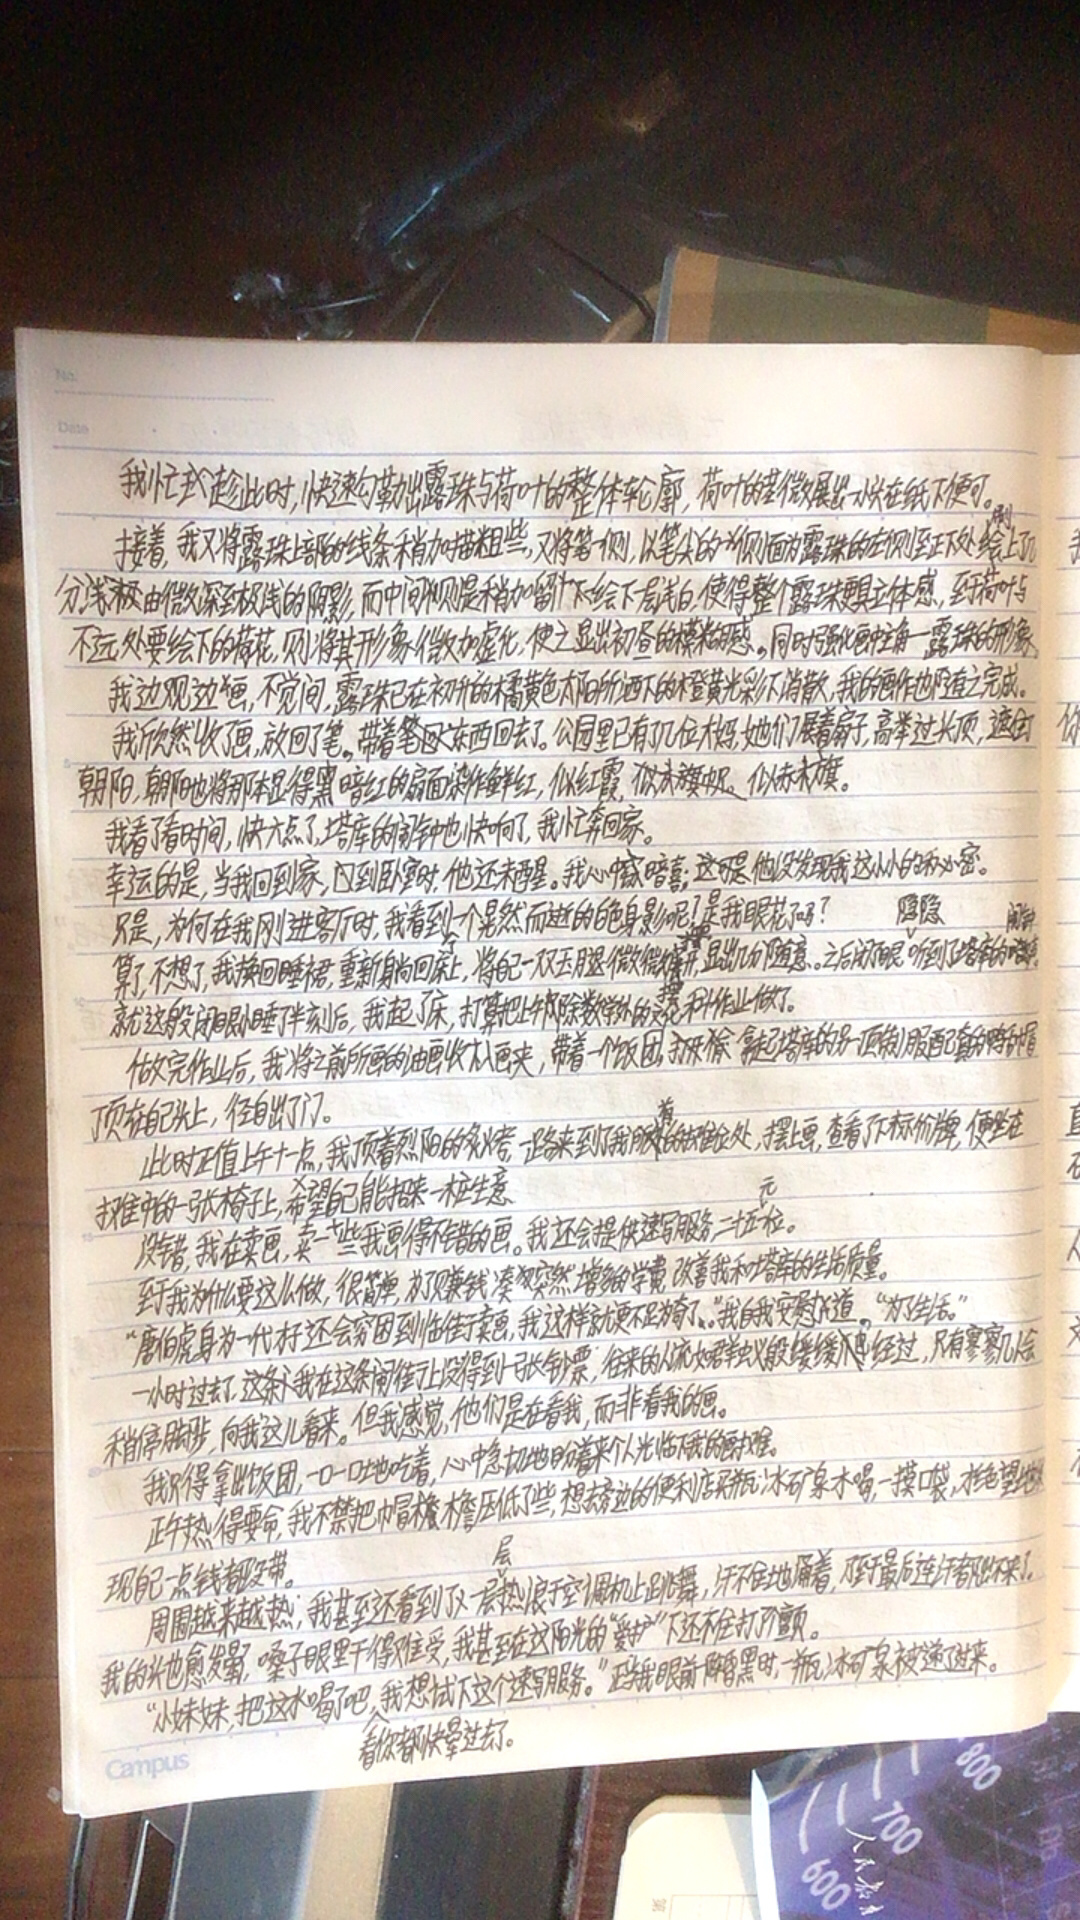 No.
Date
我忙趁此时，快速勾勒出露珠与荷叶的整体轮廓，荷叶的茎微展出一小块在纸下便可。
接着，我又将露珠上部的线条稍加描粗些，又将笔一侧，以笔尖的侧面为露珠的左侧至正下处绘上了几
分浅极由微深至极浅的阴影，而中间则是稍加留下绘下一层浅白，使得整个露珠更具立体感，至于荷叶与
不远处要绘下的荷花，则将其形象微加虚化，使之显出初昼的模糊感。同时强化画中主角—露珠的形象。
我边观边画，不觉间，露珠已在初升的橘黄色太阳所洒下的橙黄光彩下消散，我的画作也随之完成。
我欣然收了画，放回了笔。带着东西回去了。公园里已有了几位大妈，她们展着扇子，高举过头顶，遮住
朝阳，朝阳也将那本显得黑暗红的扇面染作鲜红，似红霞，似赤旗。
我看了看时间，快六点了，塔库的闹钟也快响了，我忙奔回家。
幸运的是，当我回到家，回到卧室时，他还未醒。我心中暗喜：这可是他没发现我这小小的秘密。
只是，为何在我刚进客厅时，我看到一个晃然而逝的白色身影呢？是我眼花了吗？
隐隐 闹钟
算了，不想了，我换回睡裙，重新躺回床上，将自己一双玉腿微微，显出几份随意。之后闭眼听到了塔库的
就这般闭眼小睡了半刻后，我起了床，打算把上午除数学外的文科作业做了。
做完作业后，我将之前所画的油画收入画夹，带着一个饭团，拿起塔库的另一顶制服配套的鸭舌帽
顶在自己头上，径自出了门。
此时正值上午十一点，我顶着烈阳的炙烤，一路来到了我的摊位处，摆上画，查看了下标价牌，便坐在
摊中的一张椅子上，希望自己能招来一桩生意
元
没错，我在卖画，卖一些我画得不错的画。我还会提供速写服务，二十五一位。
至于我为什么要这么做，很简单，为了赚钱，凑突然增多的学费，改善我和塔库的生活质量。
“唐伯虎身为一代才子还会穷困到临街卖画，我这样就更不足为奇了。”我自我安慰道。“为了生活。”
一小时过去了，我在这条闹街上没得到一张钞票，往来的人流如君羊虫义般缓缓经过，只有寥寥几人会
稍停脚步，向我这儿看来。但我感觉，他们是在看我，而非看我的画。
我只得拿出饭团，一口一口地吃着，心中急切地盼着来个人光临下我的画摊。
正午热得要命，我不禁把帽檐压低了些，想去旁边的便利店买瓶冰矿泉水喝，一摸口袋，才绝望地发
现自己一点钱都没带。
层
周围越来越热，我甚至还看到了一层热浪于空调机上跳舞，汗不住地涌着，到最后连汗都出不来了。
我的头也愈发晕，嗓子眼里干得难受，我甚至在这阳光的“爱护”下还不住打了个颤。
“小妹妹，把这水喝了吧，我想试下这个速写服务。”正当我眼前阵阵黑时，一瓶冰矿泉被递了过来。
看你都快晕过去了。
Campus
800
700
600
人民教育